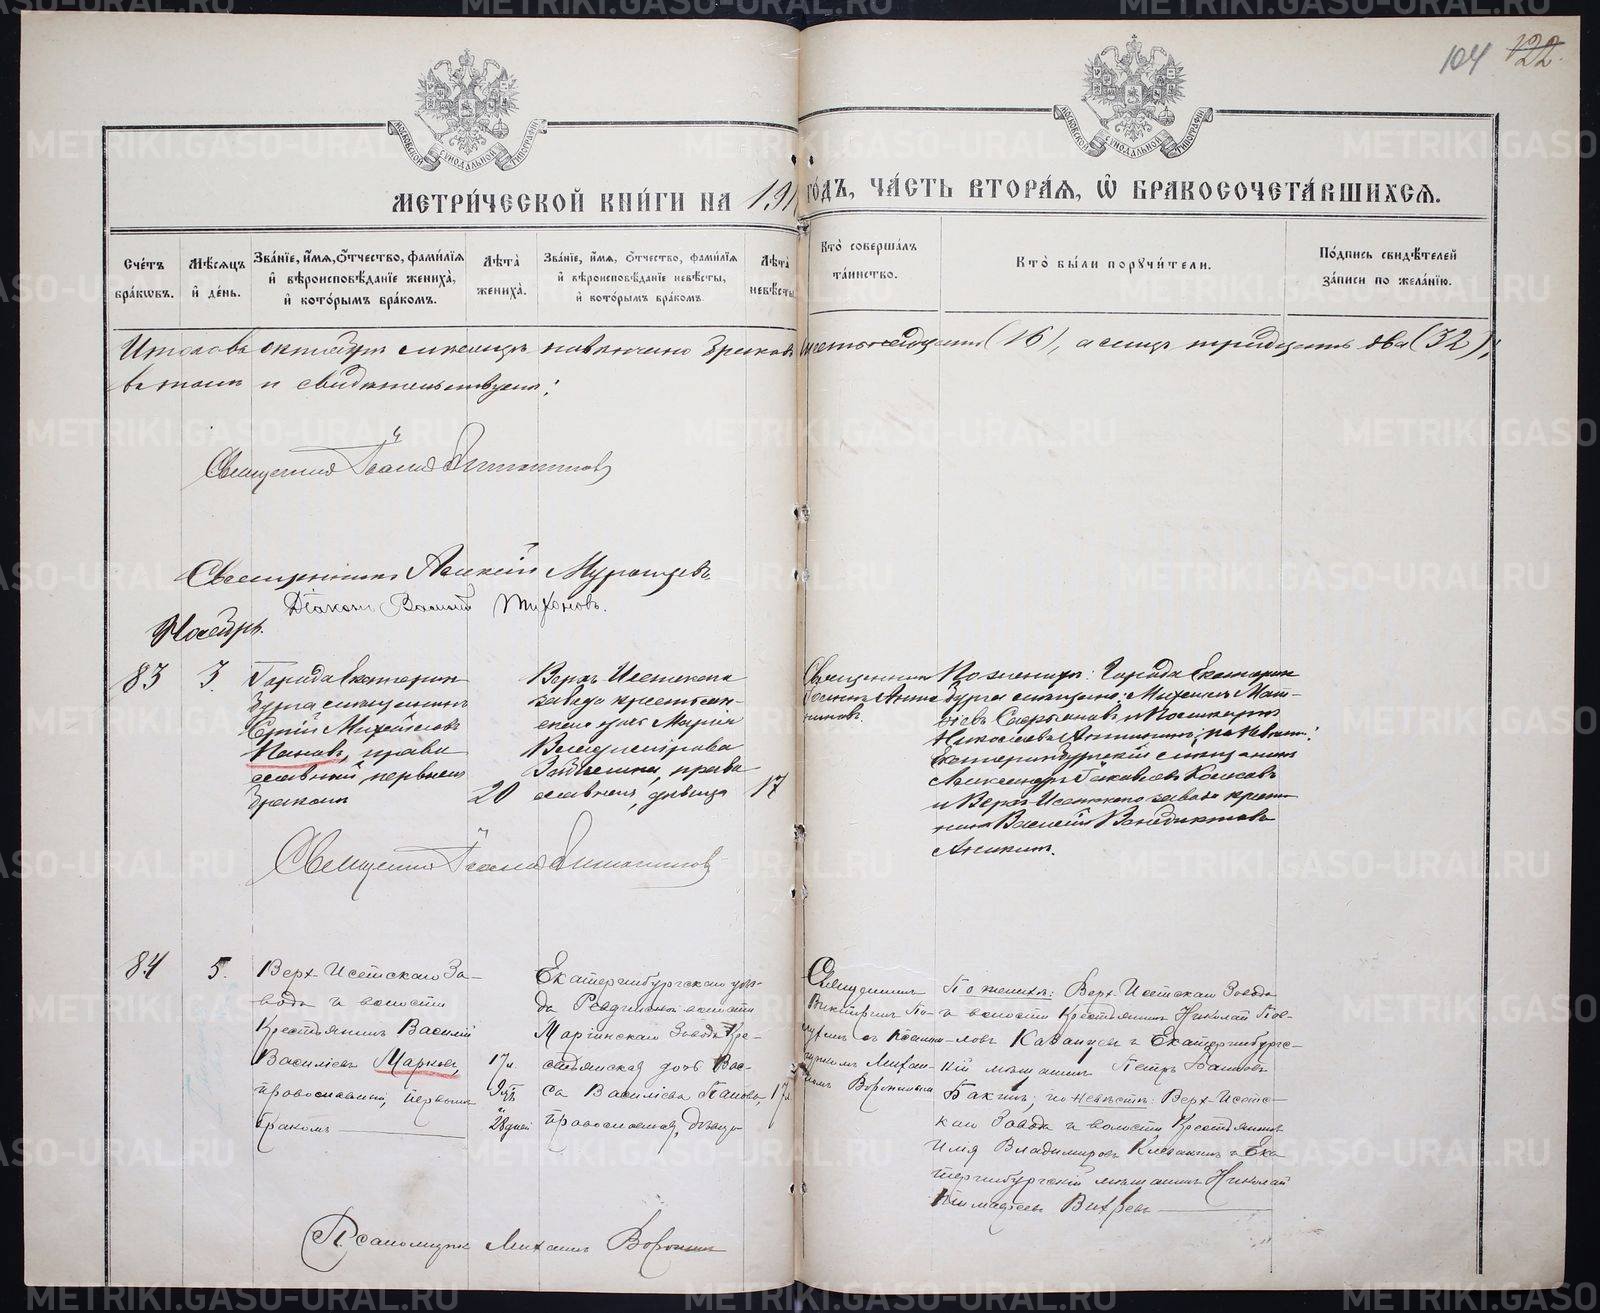 104 122.
МОСКОВСКОЙ СѴНОДАЛЬНОЙ ТИПОГРАФІИ
МОСКОВСКОЙ СѴНОДАЛЬНОЙ ТИПОГРАФІИ
МЕТРИ́ЧЕСКОЙ КНИ́ГИ НА 191 ГО́ДЪ, ЧА́СТЬ ВТОРА́Я, Ѡ БРАКОСОЧЕТА́ВШИХСЯ.
Сче́тъ бра́кѡвъ.
Мѣ́сяцъ и҆ де́нь.
Зва́нїе, и҆́мя, ѻ҆́тчество, фами́лїя и҆ вѣроисповѣ́данїе жениха̀, и҆ кото́рымъ бра́комъ.
Лѣта̀ жениха̀.
Зва́нїе, и҆́мя, ѻ҆́тчество, фами́лїя и҆ вѣроисповѣ́данїе невѣ́сты, и҆ кото́рымъ бра́комъ.
Лѣта̀ невѣ́сты
Кто̀ соверша́лъ та́инство.
Кто̀ бы́ли порꙋчи́тели.
По́дпись свидѣ́телей за́писи по жела́нїю.
Итого въ октябрѣ мѣсяцѣ повѣнчано браковъ шестьнадцать (16), а лицъ тридцать два (32),
въ томъ и свидѣтельствуемъ:
Священникъ Іоаннъ
Священникъ Алексій Мурашевъ
Діаконъ Василій Тихоновъ.
Ноябрь.
83
3.
Города Екатерин
бурга мѣщанинъ
Сергій Михайловъ
Пановъ, право
славный, первымъ
бракомъ
20
Верхъ Исетскаго
завода крестьян-
ская дочь Марія
православная, дѣвица
17
Священникъ
По женихѣ: Города Екатерин
бурга мѣщане: Михаилъ Мат-
вѣевъ
Николаевъ по невѣстѣ:
Екатеринбургскій мѣщанинъ
Александръ Іаковлевъ
и Верхъ Исетскаго завода
Василій Венедиктовъ
Аникинъ.
Священникъ Іоаннъ
84
5.
Верх-Исетскаго За-
вода и волости
Крестьянинъ Василій
Василіевъ Марковъ,
православный, первымъ
бракомъ
17 л.
9 мѣс.
и
28 дней
Екатеринбургскаго уѣз-
да Ревдинской волости
Маріинскаго Завода Кре-
стьянская дочь Васс-
са Василіева Панова,
православная, дѣвица
17 л.
Священникъ
Викторинъ По-
съ Псалом-
щикомъ Михаи-
ломъ Воронинымъ
По женихѣ: Верх-Исетскаго Завода
и волости Крестьянинъ Николай Пав-
ловъ Казанцевъ и Екатеринбургс-
кій мѣщанинъ Петръ Ивановъ
Бакинъ; по невѣстѣ: Верх-Исетс-
каго Завода и волости Крестьянинъ
Владимировъ и Ека-
теринбургскій мѣщанинъ Николай
Тимофеевъ Вихревъ
Псаломщикъ Михаилъ Воронинъ
METRIKI.GASO-URAL.RU